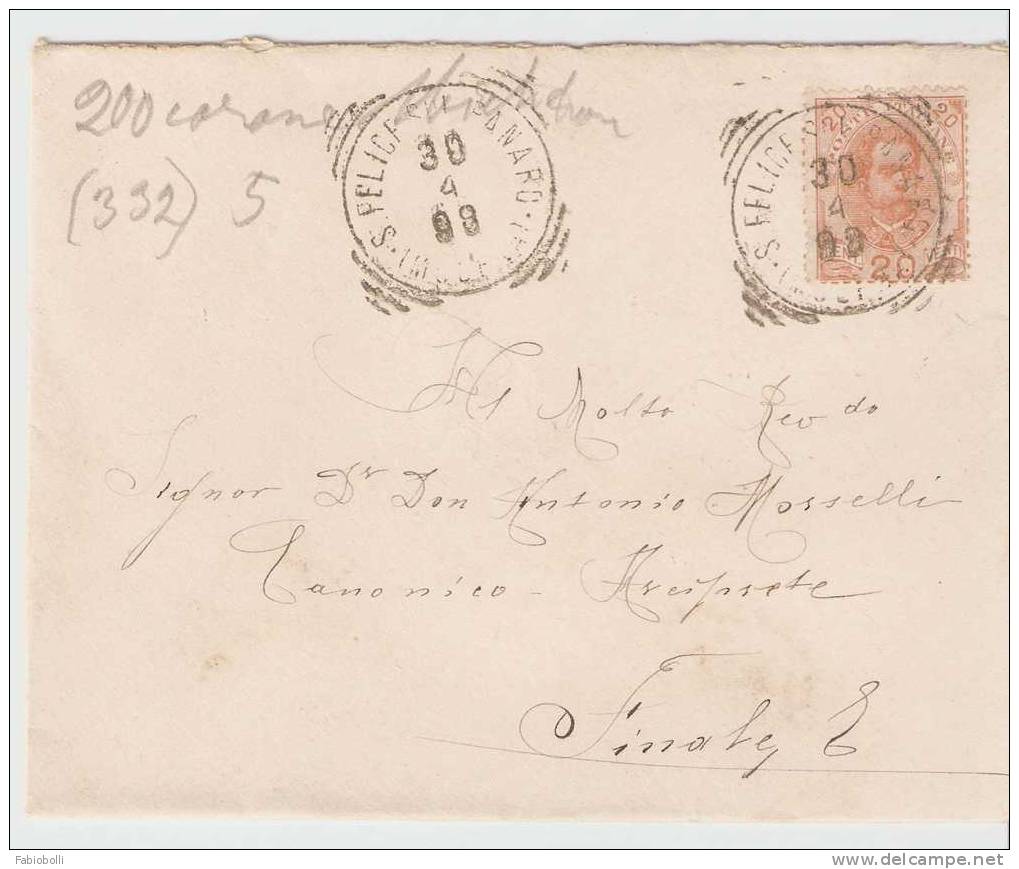 200
(332) 5
S. FELICE SUL PANARO
30
4
98
S. FELICE SUL PANARO
30
4
98
20 POSTE ITALIANE 20
CENT 20
Al Molto Rev do
Signor Dr Don Antonio Morselli
Canonico - Arciprete
Finale, E
Fabiobolli
www.delcampe.net